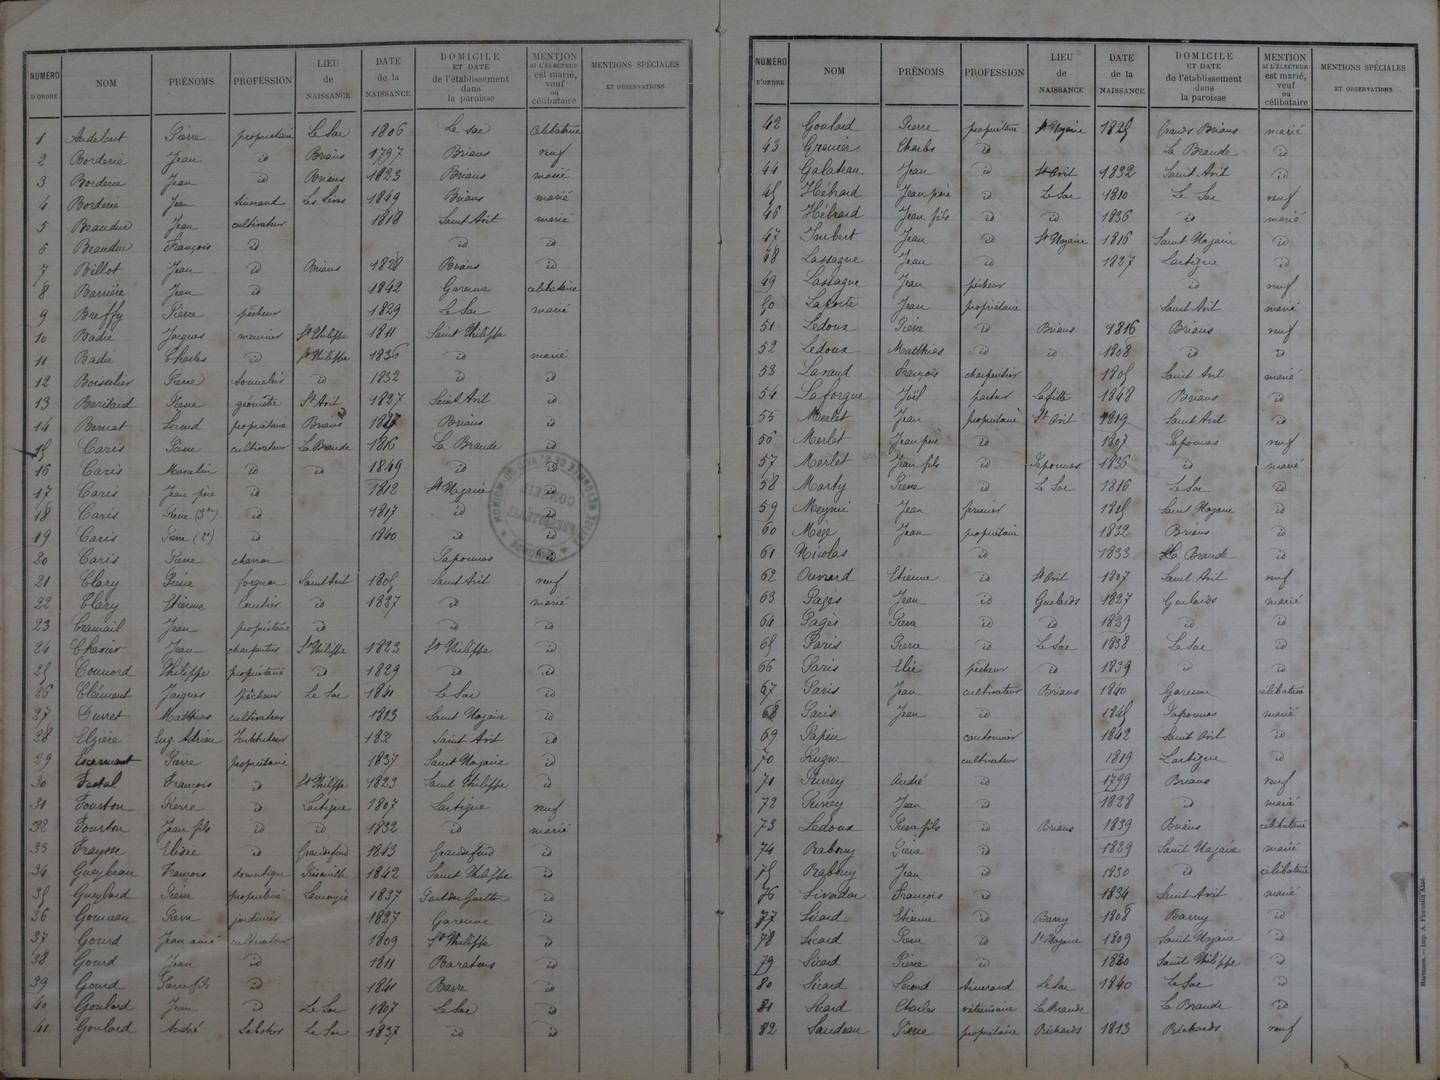 NUMÉRO D'ORDRE NOM PRÉNOMS PROFESSION LIEU de NAISSANCE DATE de la NAISSANCE DOMICILE ET DATE de l'établissement dans la paroisse MENTION SI L'ÉLECTEUR est marié, veuf ou célibataire MENTIONS SPÉCIALES ET OBSERVATIONS
1 Audebert Pierre propriétaire Le Sac 1806 Le Sac célibataire
2 Borderie Jean id Brians 1797 Brians veuf
3 Borderie Jean id Brians 1823 Brians marié
4 Borderie Jean tisserand 1849 Brians marié
5 Beaudue Jean cultivateur 1818 Saint Avit marié
6 Beaudue François id id id
7 Billot Jean id Brians 1828 Brians id
8 Barrière Jean id 1842 Garenne célibataire
9 Breffy Pierre pêcheur 1829 Le Sac marié
10 Badie Jacques meunier St Philippe 1811 Saint Philippe
11 Badie Charles id St Philippe 1836 id marié
12 Boisselier Pierre tonnelier id 1832 id id
13 Baritaud Pierre géomètre St Avit 1827 Saint Avit id
14 Bernat Second propriétaire Brians Brians id
15 Caris Pierre cultivateur La Braude 1816 La Braude id
16 Caris Marcelin id id 1849 id id
17 Caris Jean père id 1812 St Nazaire id
18 Caris Pierre id 1817 id id
19 Caris Pierre (2e) id 1840 id id
20 Caris Pierre charron Paponnas id
21 Clary Pierre forgeron Saint Avit 1805 Saint Avit veuf
22 Clary Etienne id 1837 id marié
23 Cramail Jean propriétaire id id id
24 Jean charpentier St Philippe 1823 St Philippe id
25 Counord Philippe propriétaire id 1829 id id
26 Clément Jacques pêcheur Le Sac 1841 Le Sac id
27 Durret Matthias cultivateur 1813 Saint Nazaire id
28 Elzière Eug. Adrien Saint Avit id
29 Pierre propriétaire 1837 Saint Nazaire id
30 Festal François id St Philippe 1823 Saint Philippe id
31 Fourton Pierre id Lartigue 1807 Lartigue veuf
32 Fourton Jean fils id id 1832 id marié
33 Freysse Elisée id Grandefond 1843 Grandefond id
34 Gueyleau François domestique 1842 Saint Philippe id
35 Gueylard Pierre propriétaire 1837 id
36 Gouneau Pierre jardinier 1827 Garenne id
37 Gourd Jean ainé cultivateur 1809 St Philippe id
38 Gourd Jean id 1811 Baratous id
39 Gourd Pierre fils id 1841 Barre id
40 Goulard Jean id Le Sac 1807 Le Sac id
41 Goulard André Sabotier Le Sac 1837 id id
NUMÉRO D'ORDRE NOM PRÉNOMS PROFESSION LIEU de NAISSANCE DATE de la NAISSANCE DOMICILE ET DATE de l'établissement dans la paroisse MENTION SI L'ÉLECTEUR est marié, veuf ou célibataire MENTIONS SPÉCIALES ET OBSERVATIONS
42 Goulard Pierre propriétaire St Nazaire 1825 Grands Brians marié
43 Grenier Charles id La Braude id
44 Galateau Jean id St Avit 1832 Saint Avit id
45 Hébrard Jean père id Le Sac 1810 Le Sac veuf
46 Hébrard Jean fils id id 1836 id marié
47 Imbert Jean id St Nazaire 1816 Saint Nazaire id
48 Lassagne Jean id 1827 Lartigue id
49 Lassagne Jean pêcheur id veuf
50 Laporte Jean propriétaire Saint Avit marié
51 Ledoux Pierre id Brians 1816 Brians veuf
52 Ledoux Matthias id id 1808 id id
53 Laraud François charpentier 1805 Saint Avit marié
54 Laforgue Joël pasteur Lafitte 1848 Brians id
55 Merlet Jean propriétaire St Avit 1819 Saint Avit id
56 Merlet Jean père id 1807 Paponnas veuf
57 Merlet Jean fils id Paponnas 1836 id marié
58 Marty Pierre id Le Sac 1816 Le Sac id
59 Meynié Jean fermier 1815 Saint Nazaire id
60 Mège Jean propriétaire 1832 Brians id
61 Nicolas id 1833 La Braude id
62 Ouvrard Etienne id St Avit 1807 Saint Avit veuf
63 Pagès Jean id Goulards 1827 Goulards marié
64 Pagès Pierre id id 1829 id id
65 Paris Pierre id Le Sac 1838 Le Sac id
66 Paris Elie pêcheur id 1839 id id
67 Paris Jean cultivateur Brians 1840 Garenne célibataire
68 Paris Jean id 1845 Paponnas marié
69 Papin cantonnier 1842 Saint Avit id
70 cultivateur 1819 Lartigue id
71 Purrey André id 1799 Brians veuf
72 Purrey Jean id 1828 id marié
73 Ledoux Pierre fils id Brians 1839 Brians célibataire
74 Rabouy Pierre id 1829 Saint Nazaire marié
75 Rabouy Jean id 1830 id célibataire
76 Sivadon François id 1834 Saint Avit marié
77 Sicard Etienne id Barry 1808 Barry id
78 Sicard Pierre id St Nazaire 1809 Saint Nazaire id
79 Sicard Pierre id 1830 Saint Philippe id
80 Sicard Second tisserand Le Sac 1840 Le Sac id
81 Sicard Charles vétérinaire La Braude La Braude id
82 Saudeau Pierre propriétaire Richards 1813 Richards veuf
Marmande. — Imp. A. Florentin Aîné.